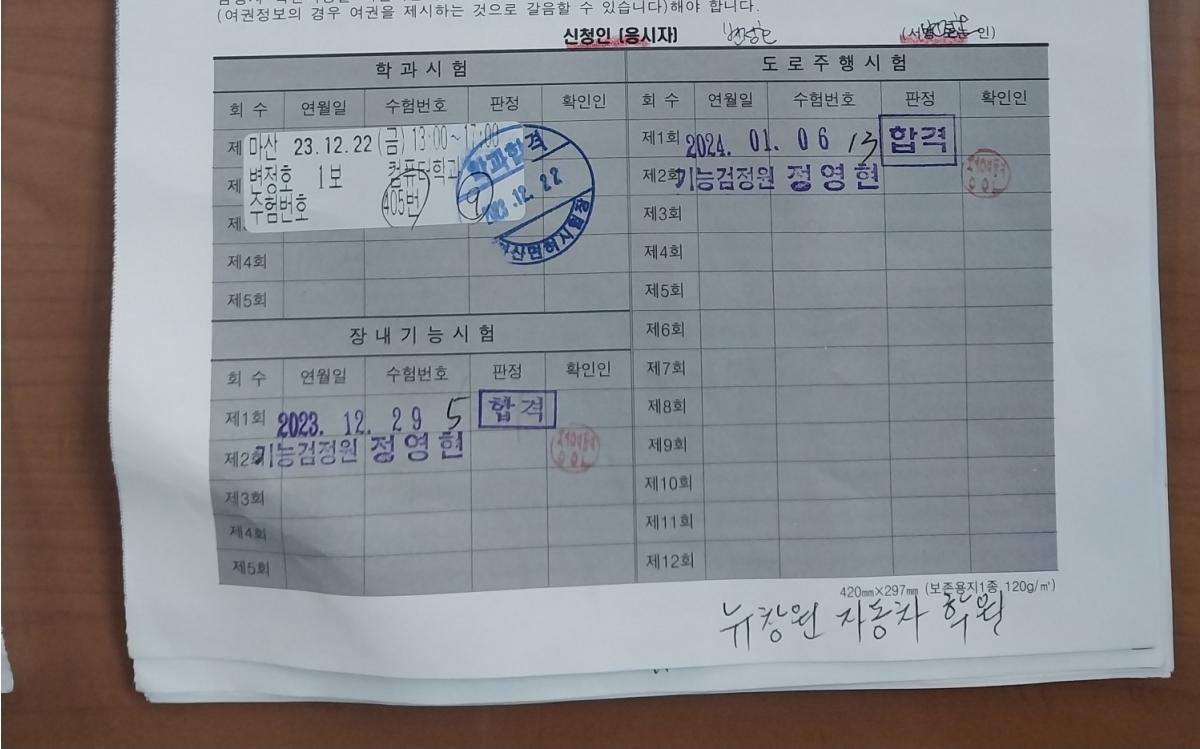 (여권정보의 경우 여권을 제시하는 것으로 갈음할 수 있습니다)해야 합니다.
신청인 (응시자)
(서명 또는 인)
학 과 시 험
회 수 연월일 수험번호 판정 확인인
제
마산 23.12.22 (금) 13:00~17:00
제
변정호 1보 컴퓨터학과
405번 9
제
수험번호
학과합격
2023.12.22
마산면허시험장
제4회
제5회
장 내 기 능 시 험
회 수 연월일 수험번호 판정 확인인
제1회 2023. 12. 29 5 합격
제2회 기능검정원 정영현
제3회
제4회
제5회
도 로 주 행 시 험
회 수 연월일 수험번호 판정 확인인
제1회 2024. 01. 06 13 합격
제2회 기능검정원 정영현
제3회
제4회
제5회
제6회
제7회
제8회
제9회
제10회
제11회
제12회
420㎜×297㎜ (보존용지1종 120g/㎡)
뉴창원 자동차 학원